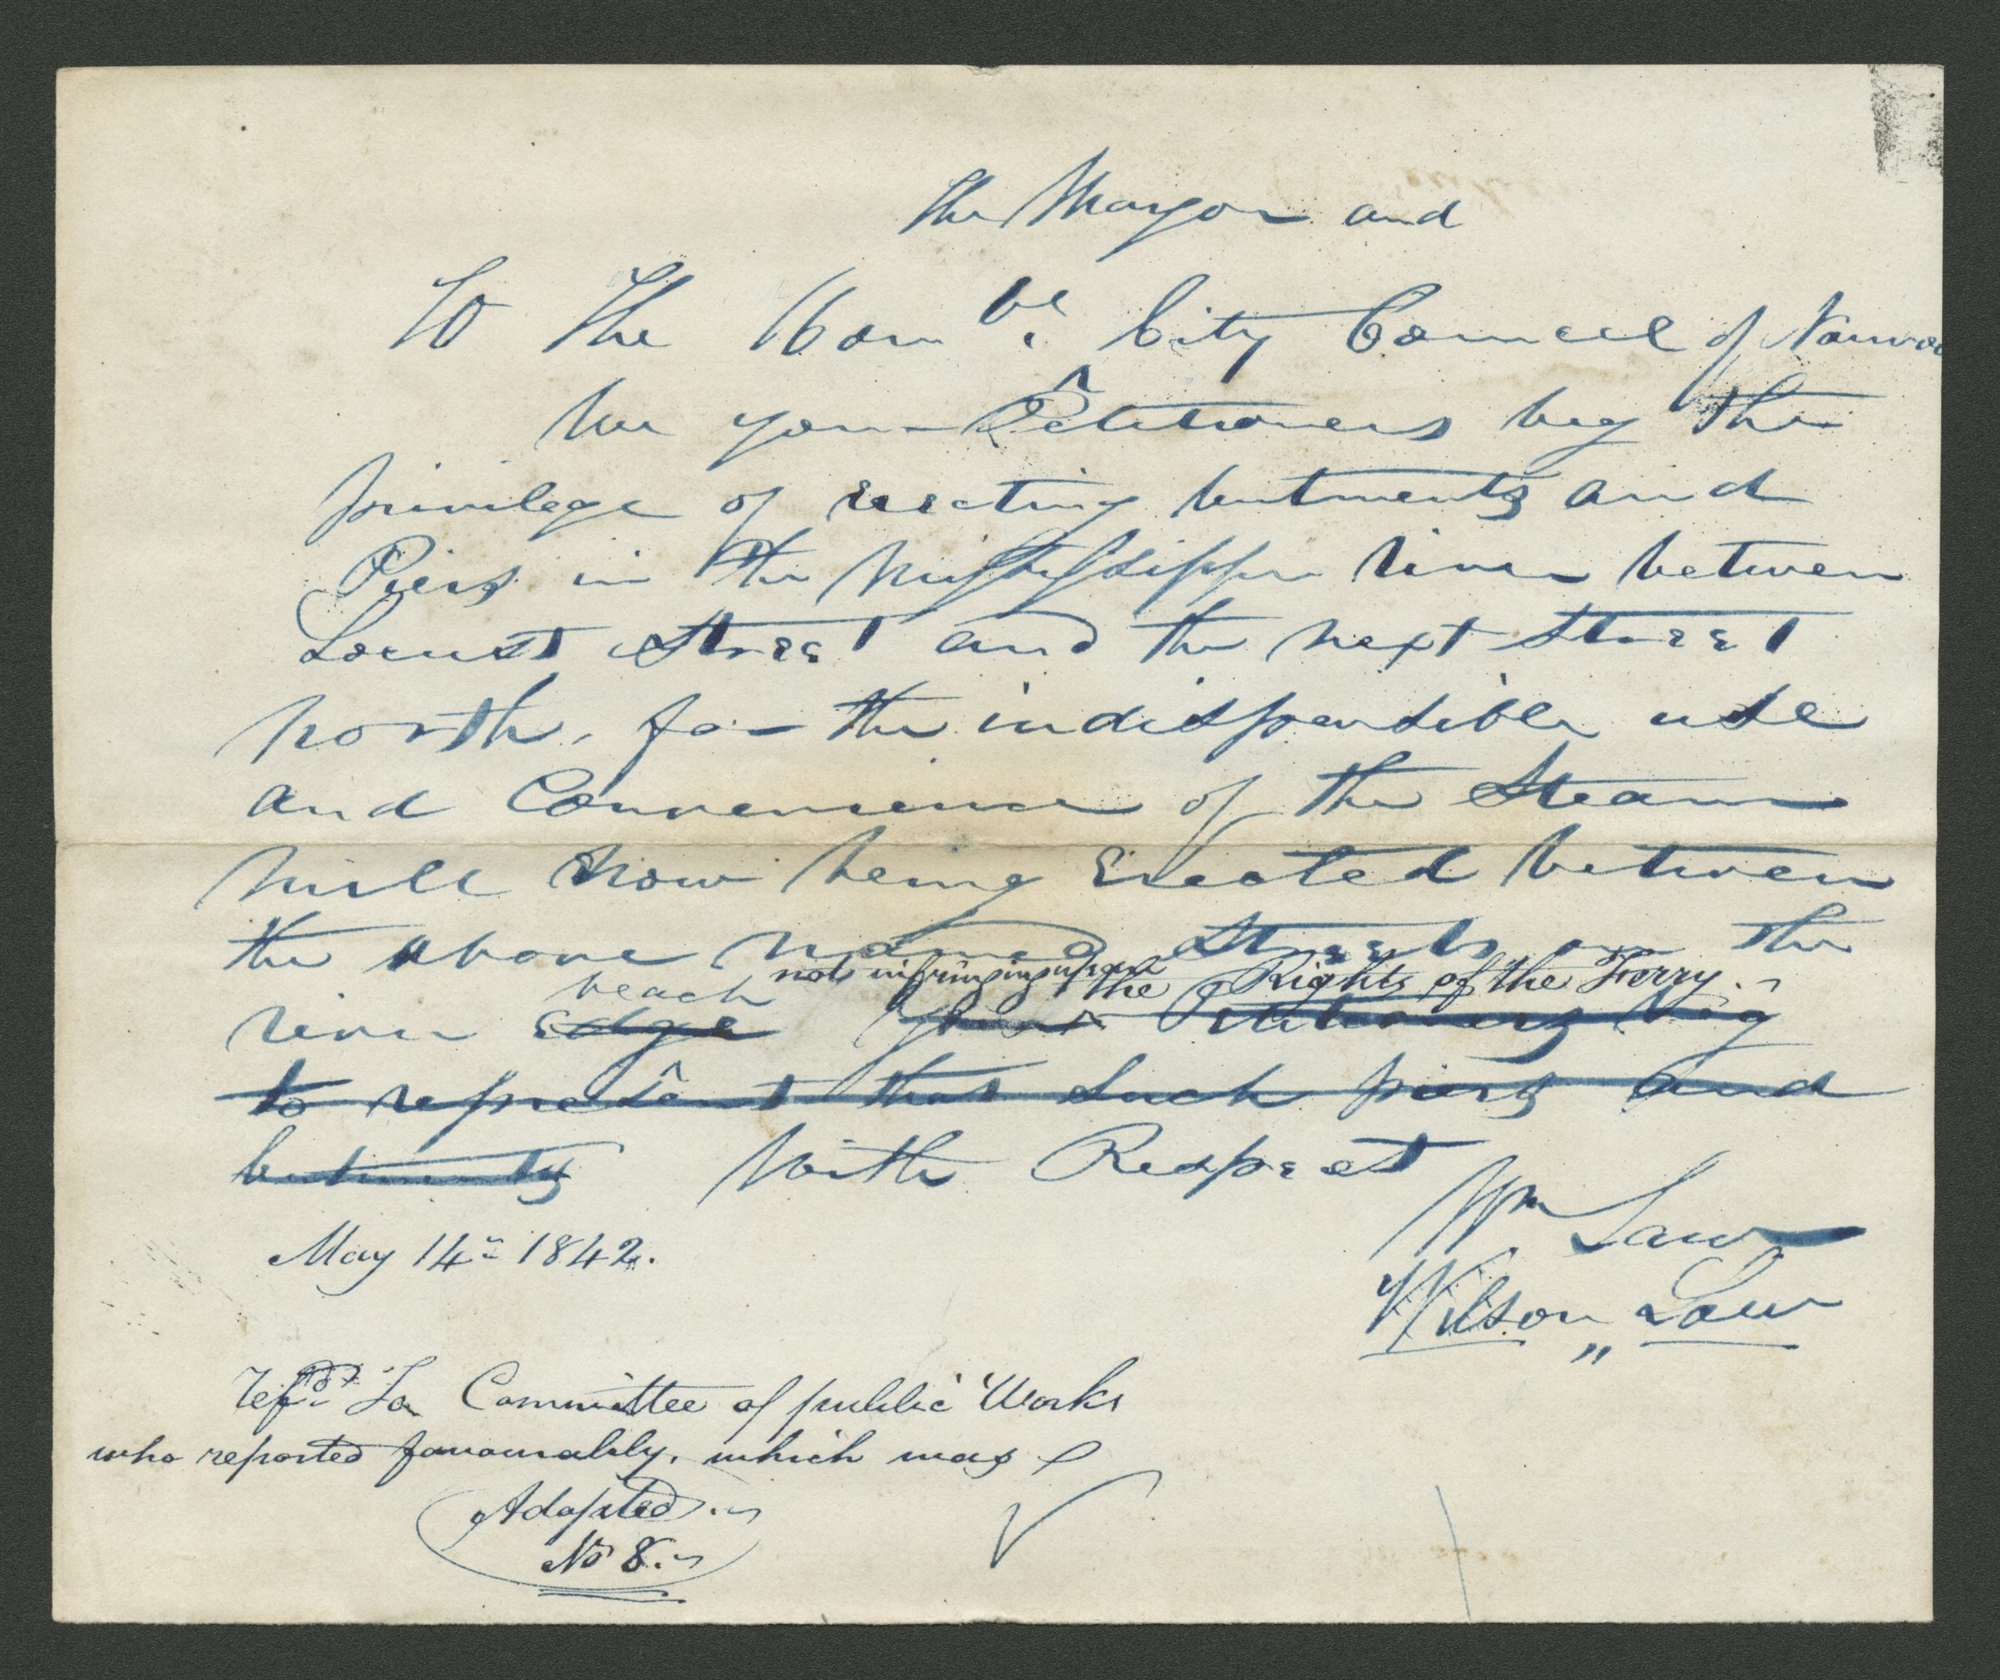 the Mayor and
To The Honbl. City Councel of Nauvoo
We your Petitioners beg the
privilege of erecting butments and
Piers in the Mississippi river between
Locust Street and the next Street
north, for the indispensible use
and Convenience of the Steam
mill now being Erected between
the above named Streets on the
beach not infringing upon the Rights of the Ferry.
river edge Your Petitioners beg
to represent that such piers and
butments With Respect
Wm Law
May 14th 1842.
Wilson Law
refrd. To Committee of public Works
who reported favourably, which was
Adopted.
No 8.